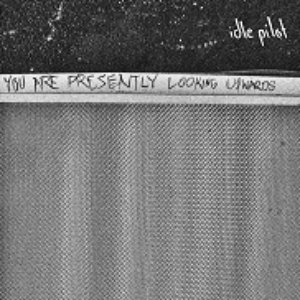 idle pilot
YOU ARE PRESENTLY LOOKING UPWARDS